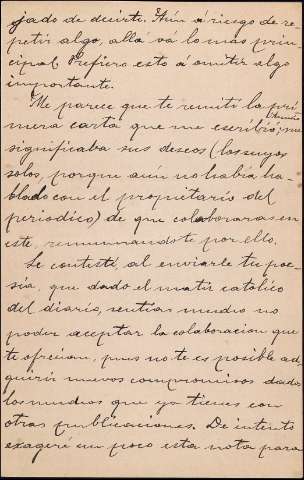 jado de decirte. Aún á riesgo de re-
petir algo, allá vá lo mas prin-
cipal. Prefiero esto á omitir algo
importante.
Me parece que te remití la pri-
mera carta que me escribió; me
significaba sus deseos (los suyos
solos, porque aún no habia ha-
blado con el propietario del
periodico) de que colaboraras en
este, remunerandote por ello.
Le contesté, al enviarle tu poe-
sía, que dado el matiz católico
del diario, sentías mucho no
poder aceptar la colaboracion que
te ofrecian, pues no te es posible ad-
quirir nuevos compromisos dados
los muchos que ya tienes con
otras publicaciones. De intento
exageré un poco esta nota para